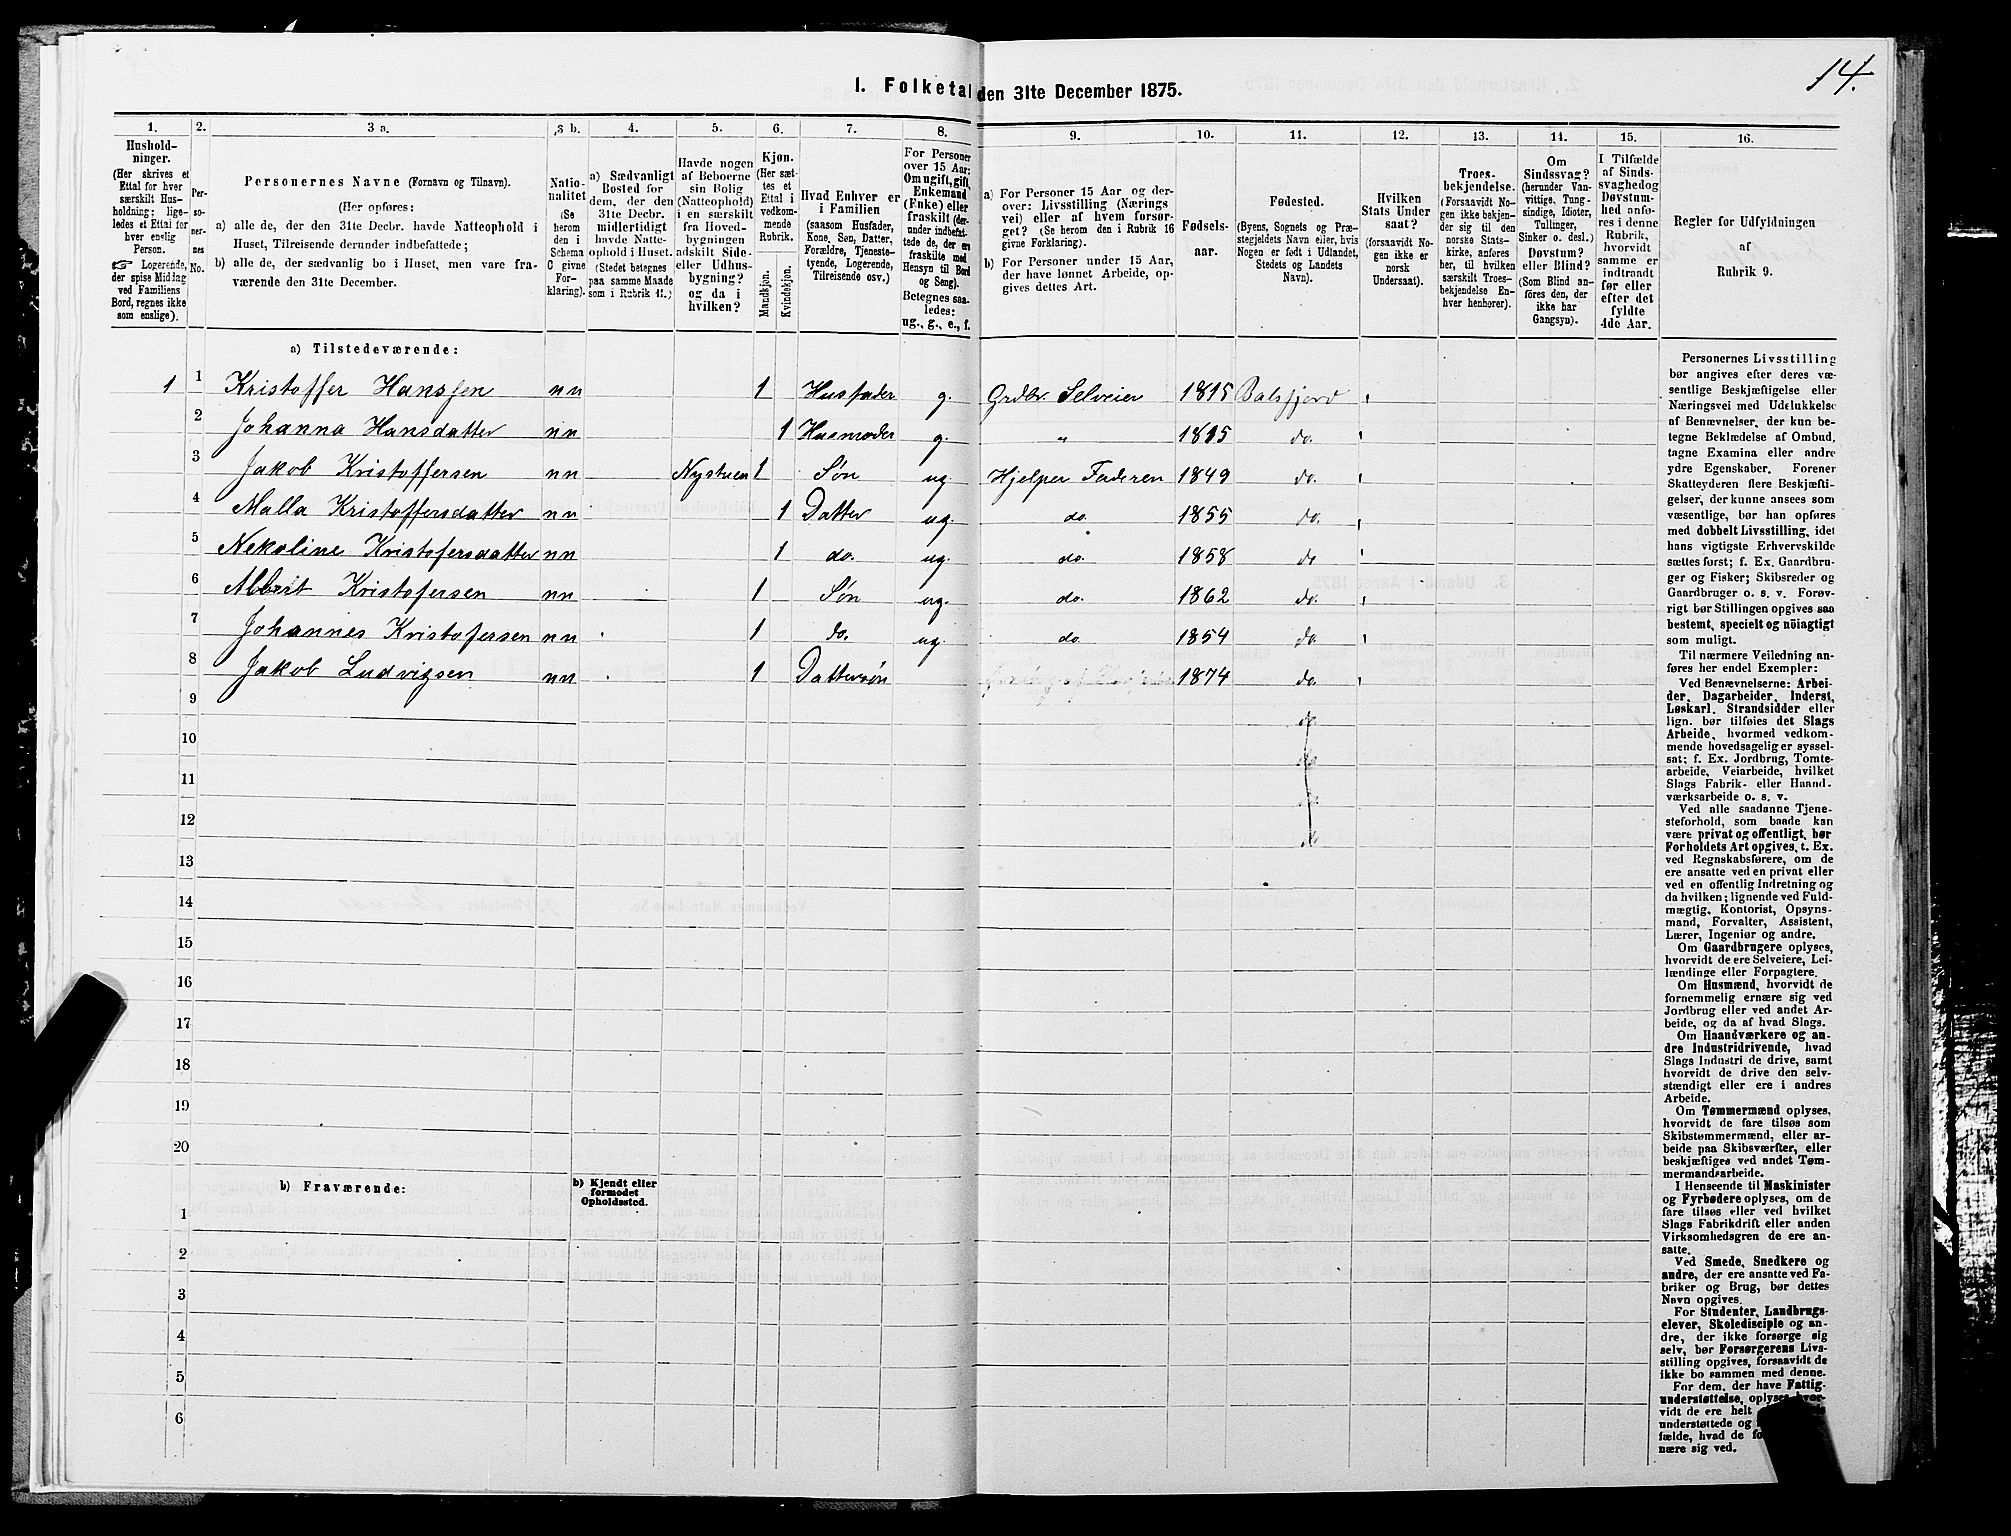 14.
I. Folketal den 31te December 1875.
1. 2. 3 a. 3 b. 4. 5. 6. 7. 8. 9. 10. 11. 12. 13. 14. 15. 16.
Hushold-
ninger.
(Her skrives et
Ettal for hver
særskilt Hus-
holdning; lige-
ledes et Ettal for
hver enslig
Person.
☞ Logerende,
der spise Middag
ved Familiens
Bord, regnes ikke
som enslige).
Per-
so-
ner-
nes
No.
Personernes Navne (Fornavn og Tilnavn).
(Her opføres:
a) alle de, der den 31te Decbr. havde Natteophold i
Huset, Tilreisende derunder indbefattede;
b) alle de, der sædvanlig bo i Huset, men vare fra-
værende den 31te December.
Natio-
nalitet
(Se
herom
den i
Schema
C givne
For-
klaring).
a) Sædvanligt
Bosted for
dem, der den
31te Decbr.
midlertidigt
havde Natte-
ophold i Huset.
(Stedet betegnes
paa samme Maade
som i Rubrik 11.)
Havde nogen
af Beboerne
sin Bolig
(Natteophold)
i en særskilt
fra Hoved-
bygningen
adskilt Side-
eller Udhus-
bygning?
og da i
hvilken?
Kjøn.
(Her sæt-
tes et
Ettal i
vedkom-
mende
Rubrik.
Mandkjøn.
Kvindekjøn.
Hvad Enhver er
i Familien
(saasom Husfader,
Kone, Søn, Datter,
Forældre, Tjeneste-
tyende, Logerende,
Tilreisende osv.)
For Personer
over 15 Aar;
Om ugift, gift,
Enkemand
(Enke) eller
fraskilt (der-
under indbefat-
tede de, der ere
fraskilte med
Hensyn til Bord
og Seng).
Betegnes saa-
ledes:
ug., g., e., f.
a) For Personer 15 Aar og der-
over: Livsstilling (Nærings
vei) eller af hvem forsør-
get? (Se herom den i Rubrik 16
givne Forklaring).
b) For Personer under 15 Aar,
der have lønnet Arbeide, op-
gives dettes Art.
Fødsels-
aar.
Fødested.
(Byens, Sognets og Præ-
stegjeldets Navn eller, hvis
Nogen er født i Udlandet,
Stedets og Landets
Navn).
Hvilken
Stats Under
saat?
(forsaavidt No-
gen ikke er
norsk
Undersaat).
Troes-
bekjendelse.
(Forsaavidt No-
gen ikke bekjen-
der sig til den
norske Stats-
kirke, anføres
her, til hvilken
særskilt Troes-
bekjendelse En-
hver henhører).
Om
Sindssvag?
(herunder Van-
vittige, Tung-
sindige, Idioter,
Tullinger,
Sinker o. desl.)
Døvstum?
eller Blind?
(Som Blind an-
føres den, der
ikke har
Gangsyn).
I Tilfælde
af Sinds-
svaghedog
Døvstum-
hed anfø-
res i denne
Rubrik,
hvorvidt
samme er
indtraadt
før eller
efter det
fyldte
4de Aar.
Regler for Udfyldningen
af
Rubrik 9.
a) Tilstedeværende:
1 1 Kristoffer Hanssen nn 1 Husfader g. Grdbr. Selveier 1815 Balsfjord
2 Johanna Hansdatter nn 1 Husmoder g. „ 1815 do.
3 Jakob Kristoffersen nn Nystuen 1 Søn ug. Hjelper Faderen 1849 do.
4 Malla Kristoffersdatter nn 1 Datter ug. do. 1855 do.
5 Nekoline Kristofersdatter nn 1 do. ug. do. 1858 do
6 Albert Kristofersen nn 1 Søn ug. do. 1862 do.
7 Johannes Kristofersen nn 1 do. ug. do 1854 do.
8 Jakob Ludvigsen nn 1 Dattersøn 1874 do.
9 do
10 do
11 do
12 do
13
14
15
16
17
18
19
20
b) Fraværende:
b) Kjendt eller
formodet
Opholdssted.
1
2
3
4
5
6
Personernes Livsstilling
bør angives efter deres væ-
sentlige Beskjæftigelse eller
Næringsvei med Udelukkelse
af Benævnelser, der kun be-
tegne Beklædelse af Ombud,
tagne Examina eller andre
ydre Egenskaber. Forener
Skatteyderen flere Beskjæfti-
gelser, der kunne ansees som
væsentlige, bør han opføres
med dobbelt Livsstilling, idet
hans vigtigste Erhvervskilde
sættes først; f. Ex. Gaardbru-
ger og Fisker; Skibsreder og
Gaardbruger o. s. v. Forøv-
rigt bør Stillingen opgives saa
bestemt, specielt og nöiagtigt
som muligt.
Til nærmere Veiledning an-
føres her endel Exempler:
Ved Benævnelserne: Arbei-
der, Dagarbeider, Inderst,
Løskarl, Strandsidder eller
lign. bør tilføies det Slags
Arbeide, hvormed vedkom-
mende hovedsagelig er syssel-
sat; f. Ex. Jordbrug, Tomte-
arbeide, Veiarbeide, hvilket
Slags Fabrik- eller Haand-
værksarbeide o. s. v.
Ved alle saadanne Tjene-
steforhold, som baade kan
være privat og offentligt, bør
Forholdets Art opgives, t. Ex.
ved Regnskabsførere, om de
ere ansatte ved en privat eller
ved en offentlig Indretning og
da hvilken; lignende ved Fuld-
mægtig, Kontorist, Opsyns-
mand, Forvalter, Assistent,
Lærer, Ingeniør og andre.
Om Gaardbrugere oplyses,
hvorvidt de ere Selveiere, Lei-
lændinge eller Forpagtere.
Om Husmænd, hvorvidt de
fornemmelig ernære sig ved
Jordbrug eller ved andet Ar-
beide, og da af hvad Slags.
Om Haandværkere og an-
dre Industridrivende, hvad
Slags Industri de drive, samt
hvorvidt de drive den selv-
stændigt eller ere i andres
Arbeide.
Om Tømmermænd oplyses,
hvorvidt de fare tilsøs som
Skibstømmermænd, eller ar-
beide paa Skibsværfter, eller
beskjæftiges ved andet Tøm-
mermandsarbeide.
I Henseende til Maskinister
og Fyrbødere oplyses, om de
fare tilsøs eller ved hvilket
Slags Fabrikdrift eller anden
Virksomhedsgren de ere an-
satte.
Ved Smede, Snedkere og
andre, der ere ansatte ved Fa-
briker og Brug, bør dettes
Navn opgives.
For Studenter, Landbrugs-
elever, Skoledisciple og an-
dre, der ikke forsørge sig
selv, bør Forsørgerens Livs-
stilling opgives, forsaavidt de
ikke bo sammen med denne.
For dem, der have Fattig-
understøttelse, oplyses, hvor-
vidt de ere helt
understøttede og
fælde, hvad de
nære sig ved.